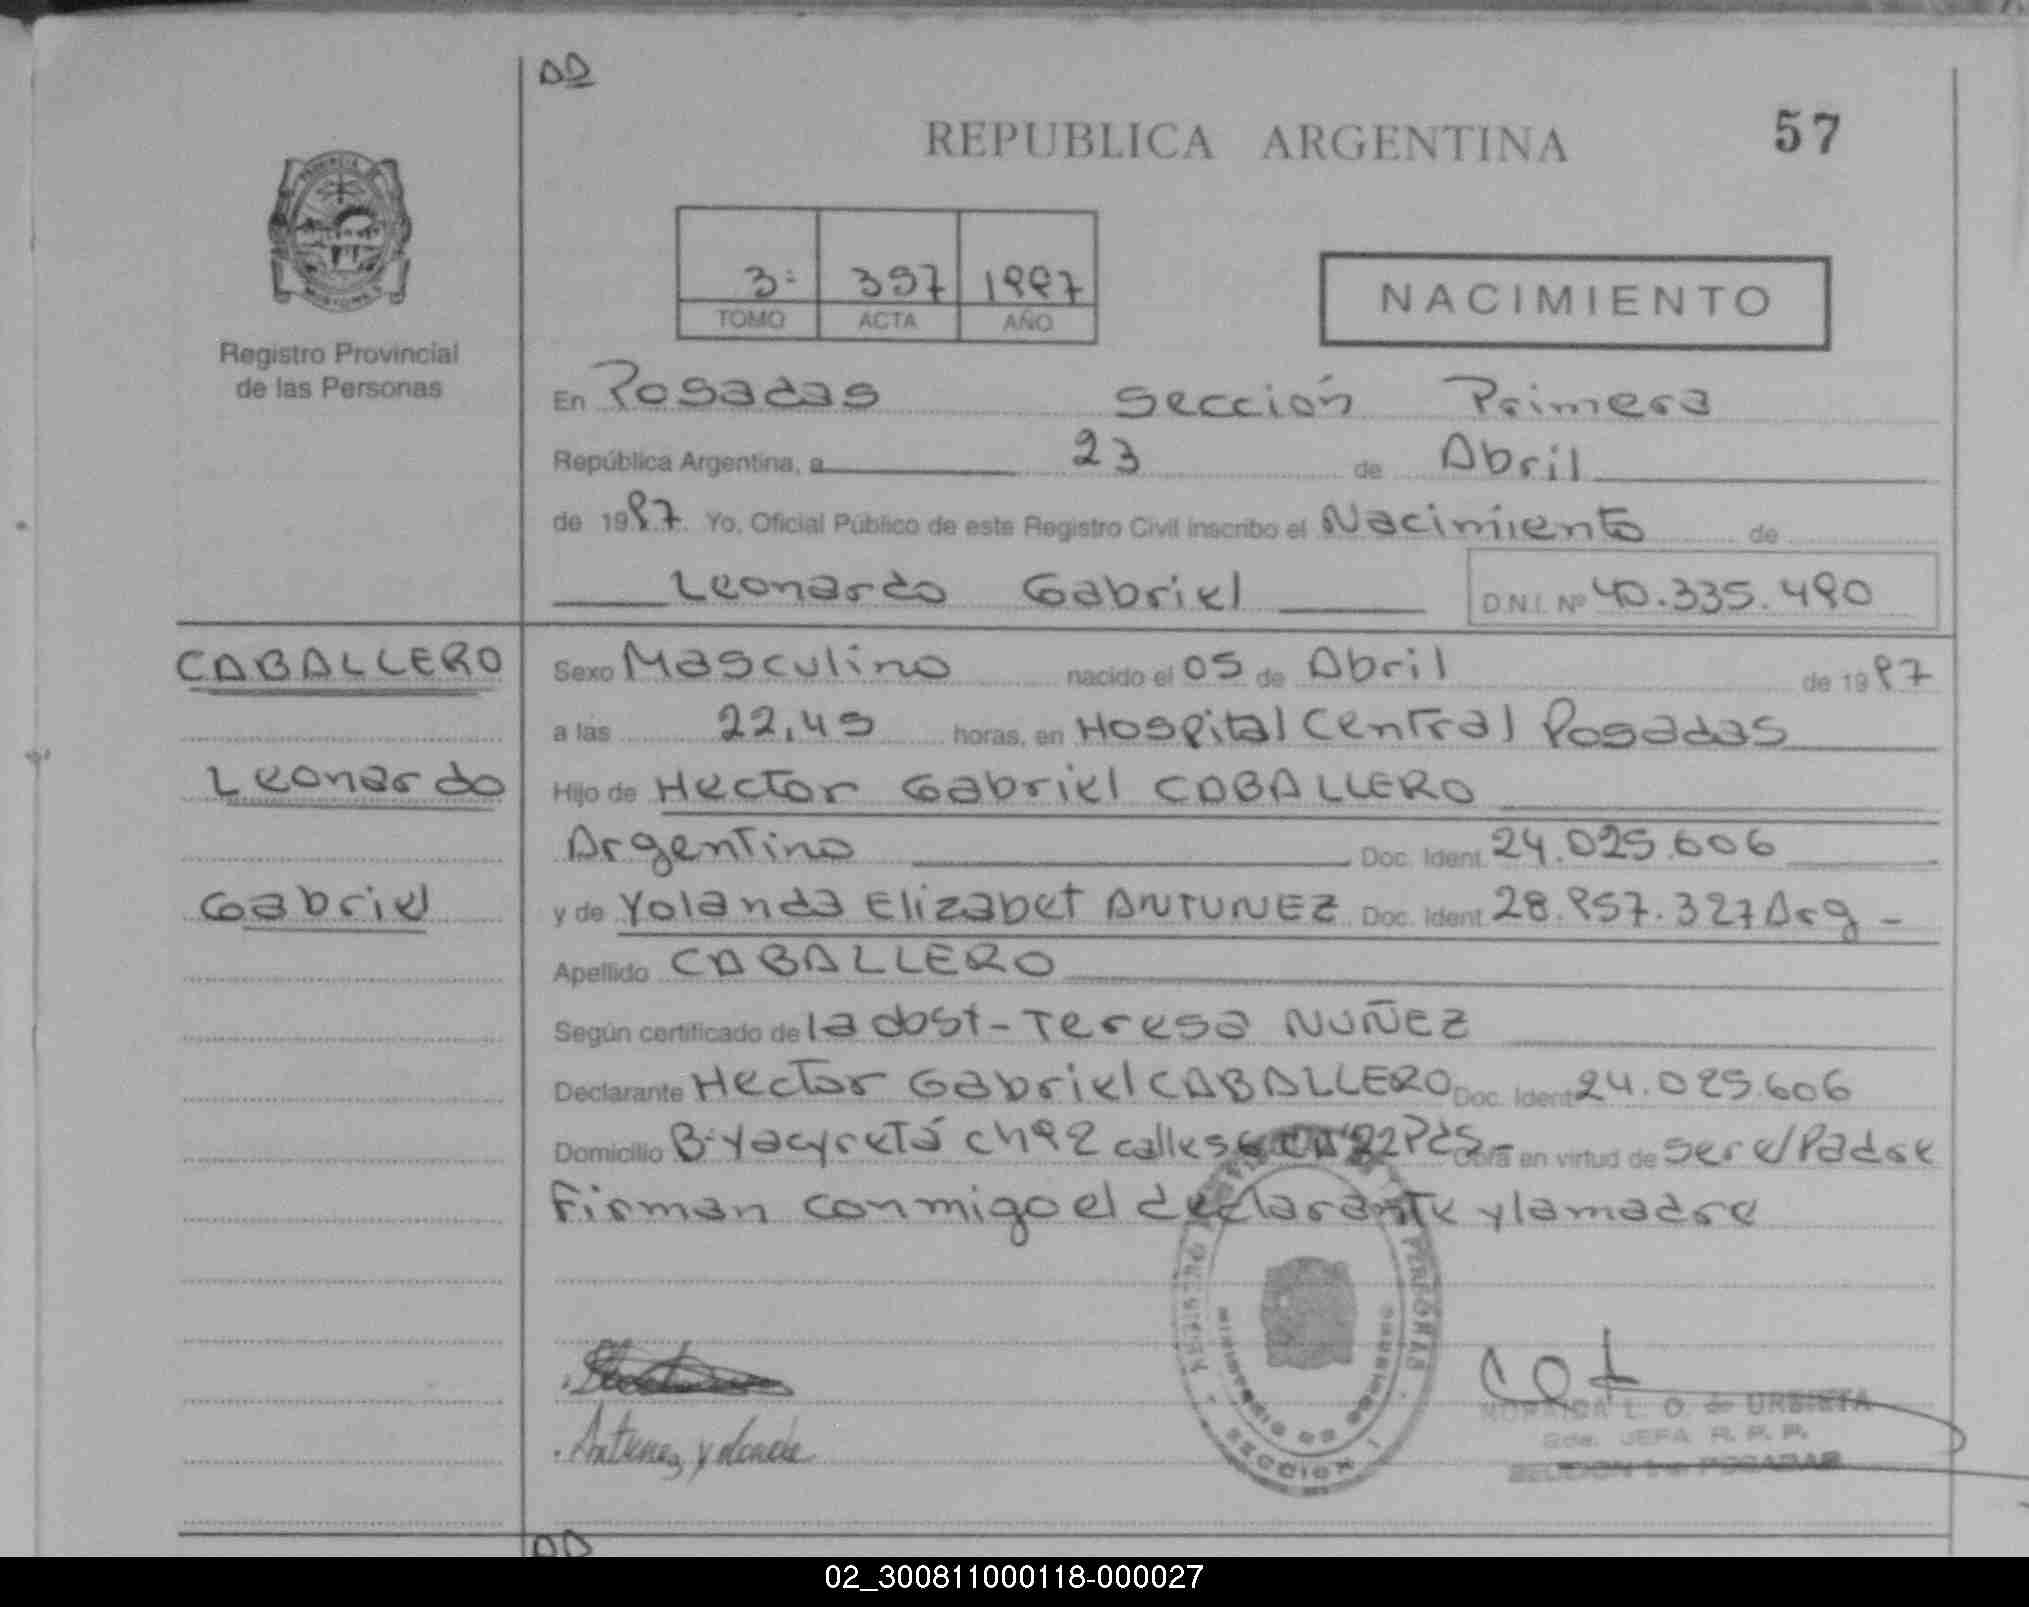 DD
REPUBLICA ARGENTINA
57
3: 397 1997
TOMO ACTA AÑO
NACIMIENTO
Registro Provincial
de las Personas
En Posadas Sección Primera
República Argentina, a 23 de Abril
de 1997. Yo, Oficial Público de este Registro Civil inscribo el Nacimiento de
Leonardo Gabriel D.N.I. Nº 40.335.490
CABALLERO
Leonardo
Gabriel
Sexo Masculino nacido el 05 de Abril de 1997
a las 22,45 horas, en Hospital Central Posadas
Hijo de Hector Gabriel CABALLERO
Argentino Doc. Ident. 24.025.606
y de Yolanda Elizabet ANTUNEZ Doc. Ident. 28.957.327 Arg -
Apellido CABALLERO
Según certificado de la obst - Teresa NUÑEZ
Declarante Hector Gabriel CABALLERO Doc. Ident. 24.025.606
Domicilio B- Yacyretá ch 92 calle Pds - Obra en virtud de ser el Padre
Firman conmigo el declarante y la madre
Antunez Yolanda
REGISTRO PERSONAS
MINISTERIO DE GOBIERNO
SECCION 1
L. O. de URBIETA
JEFA R. P. P.
SECCION 1-a POSADAS
DD
02_300811000118-000027